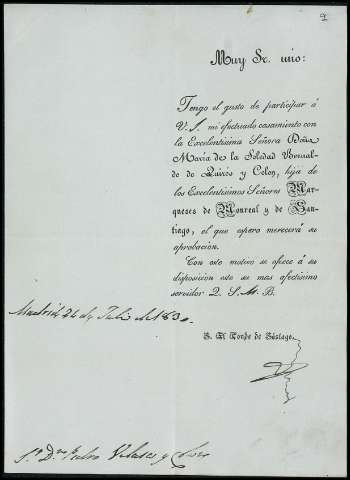 Muy Sr. mio:
Tengo el gusto de participar á
V. S. mi efectuado casamiento con
la Excelentísima Señora Doña
Maria de la Soledad Bernal-
do de Quirós y Colon, hija de
los Excelentísimos Señores Mar-
queses de Monreal y de San-
tiago, el que espero merecerá su
aprobacion.
Con este motivo se ofrece á su
disposicion este su mas afectisimo
servidor Q. S. M. B.
Madrid 24 de Julio de 183
El Conde de Sástago
Sr. Dn. Pedro Velasco y